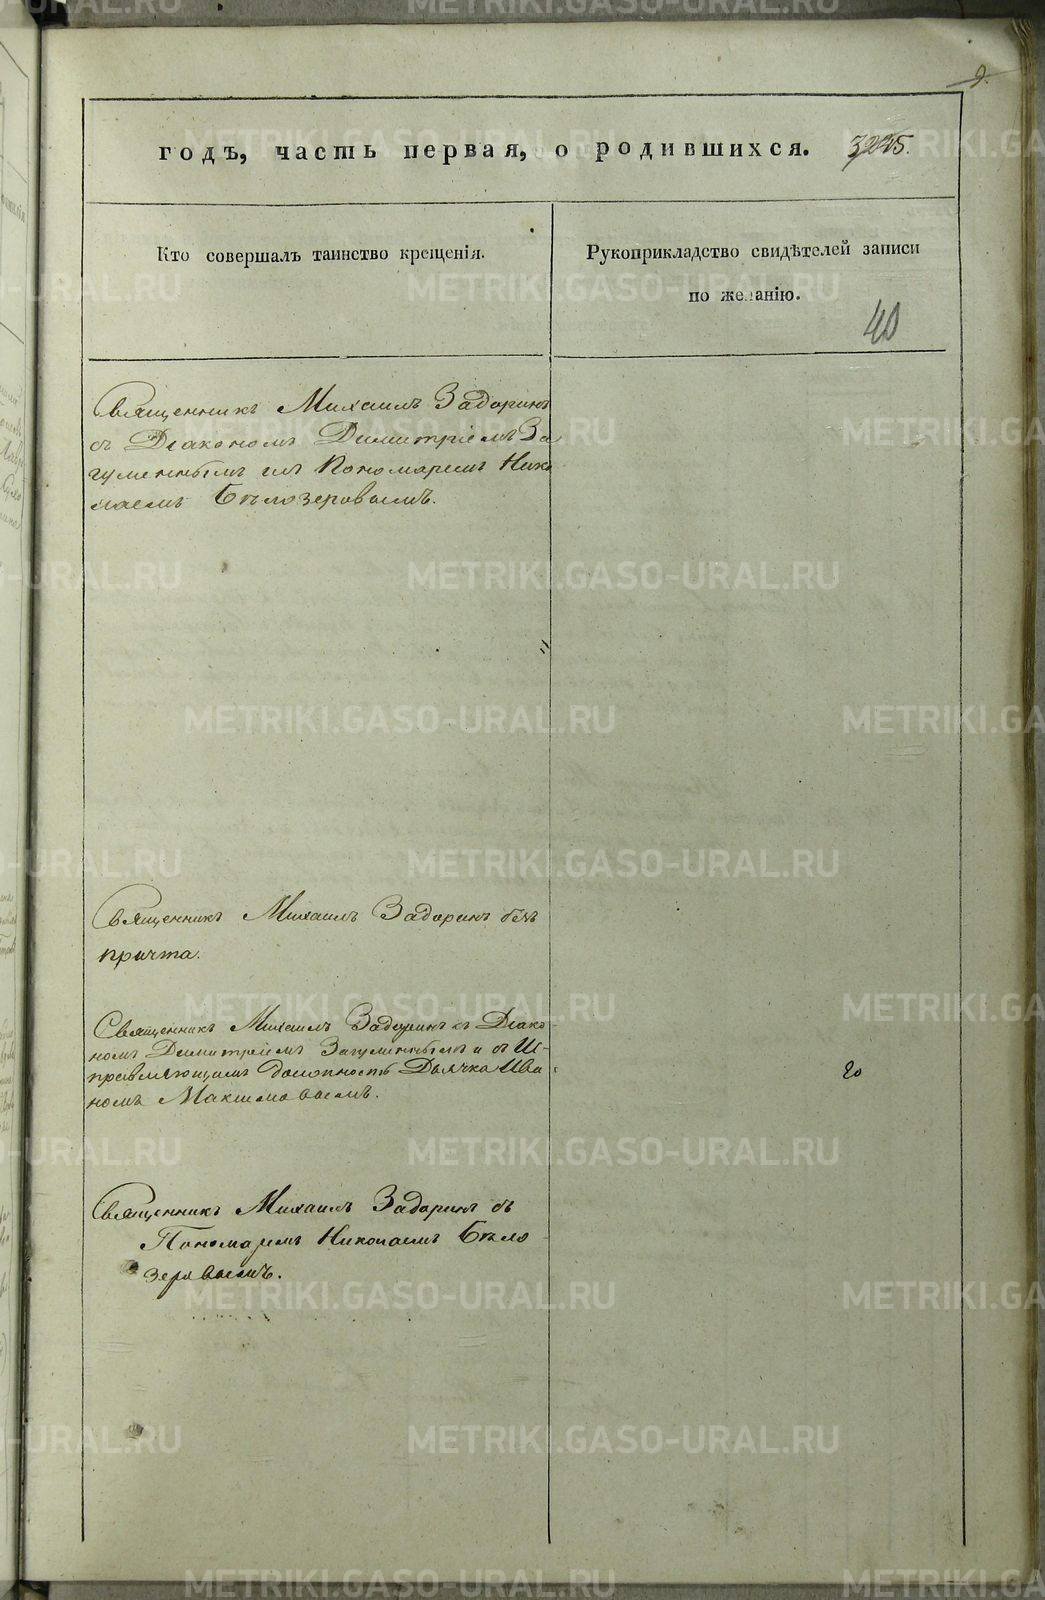 9.
годъ, часть первая, о родившихся. 3225.
Кто совершалъ таинство крещенія.
Рукоприкладство свидѣтелей записи
по желанію.
40
Священникъ Михаилъ Задоринъ
съ Діакономъ Димитріемъ За
гуменнымъ и съ Пономаремъ Нико
лаемъ Бѣлозеровымъ.
Священникъ Михаилъ Задоринъ безъ
причта.
Священникъ Михаилъ Задоринъ съ Діако
номъ Димитріемъ Загуменнымъ и съ И-
правляющимъ должность Дьячка Ива
номъ Максимовымъ.
Священникъ Михаилъ Задоринъ съ
Пономаремъ Николаемъ Бѣло
зеровымъ.
METRIKI.GASO-URAL.RU